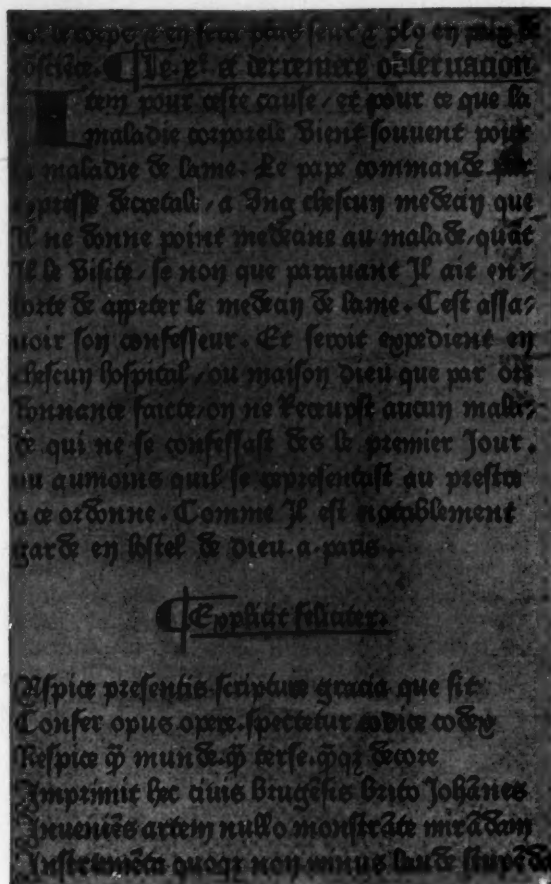 en
¶ Le.xe. et derreniere obseruation.
Item pour ceste cause / et pour ce que la
maladie corporele vient souuent pour
maladie de lame. Le pape commande par
decretale / a vng chescun medecin que
Il ne donne point medecine au malade, quāt
Il le visite / se non que parauant Jl ait en⸗
orte de appeler le medecin de lame. Cest assa⸗
uoir son confesseur. Et seroit expedient en
chescun hospital / ou maison dieu que par or⸗
donnance faicte / on ne receupst aucun mala⸗
de qui ne se confessast des le premier Jour.
ou aumoins quil se representast au prestre
a ce ordonne. Comme Jl est notablement
garde en lostel de dieu. a. paris.
¶ Explicit feliciter.
Aspice presentis scripture gracia que sit
Confer opus opere. spectetur codice codex
Respice q̄ munde. q̄ terse. q̄qȝ decore
Imprimit hec ciuis brugēsis brito Johānes
Inueniēs artem nullo monstrāte mirādam
Instrumēta quoqȝ non minus laude stupēda